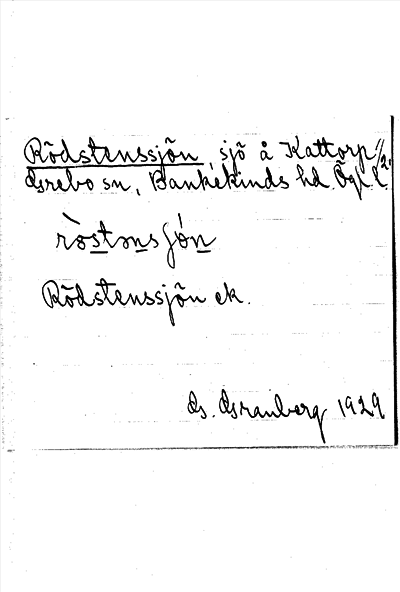 Rödstenssjön, sjö å Kattorp 1/2.
Grebo sn, Bankekinds hd. Ögl.
rò̀stənsʃón
Rödstenssjön ek.
G. Granberg 1929